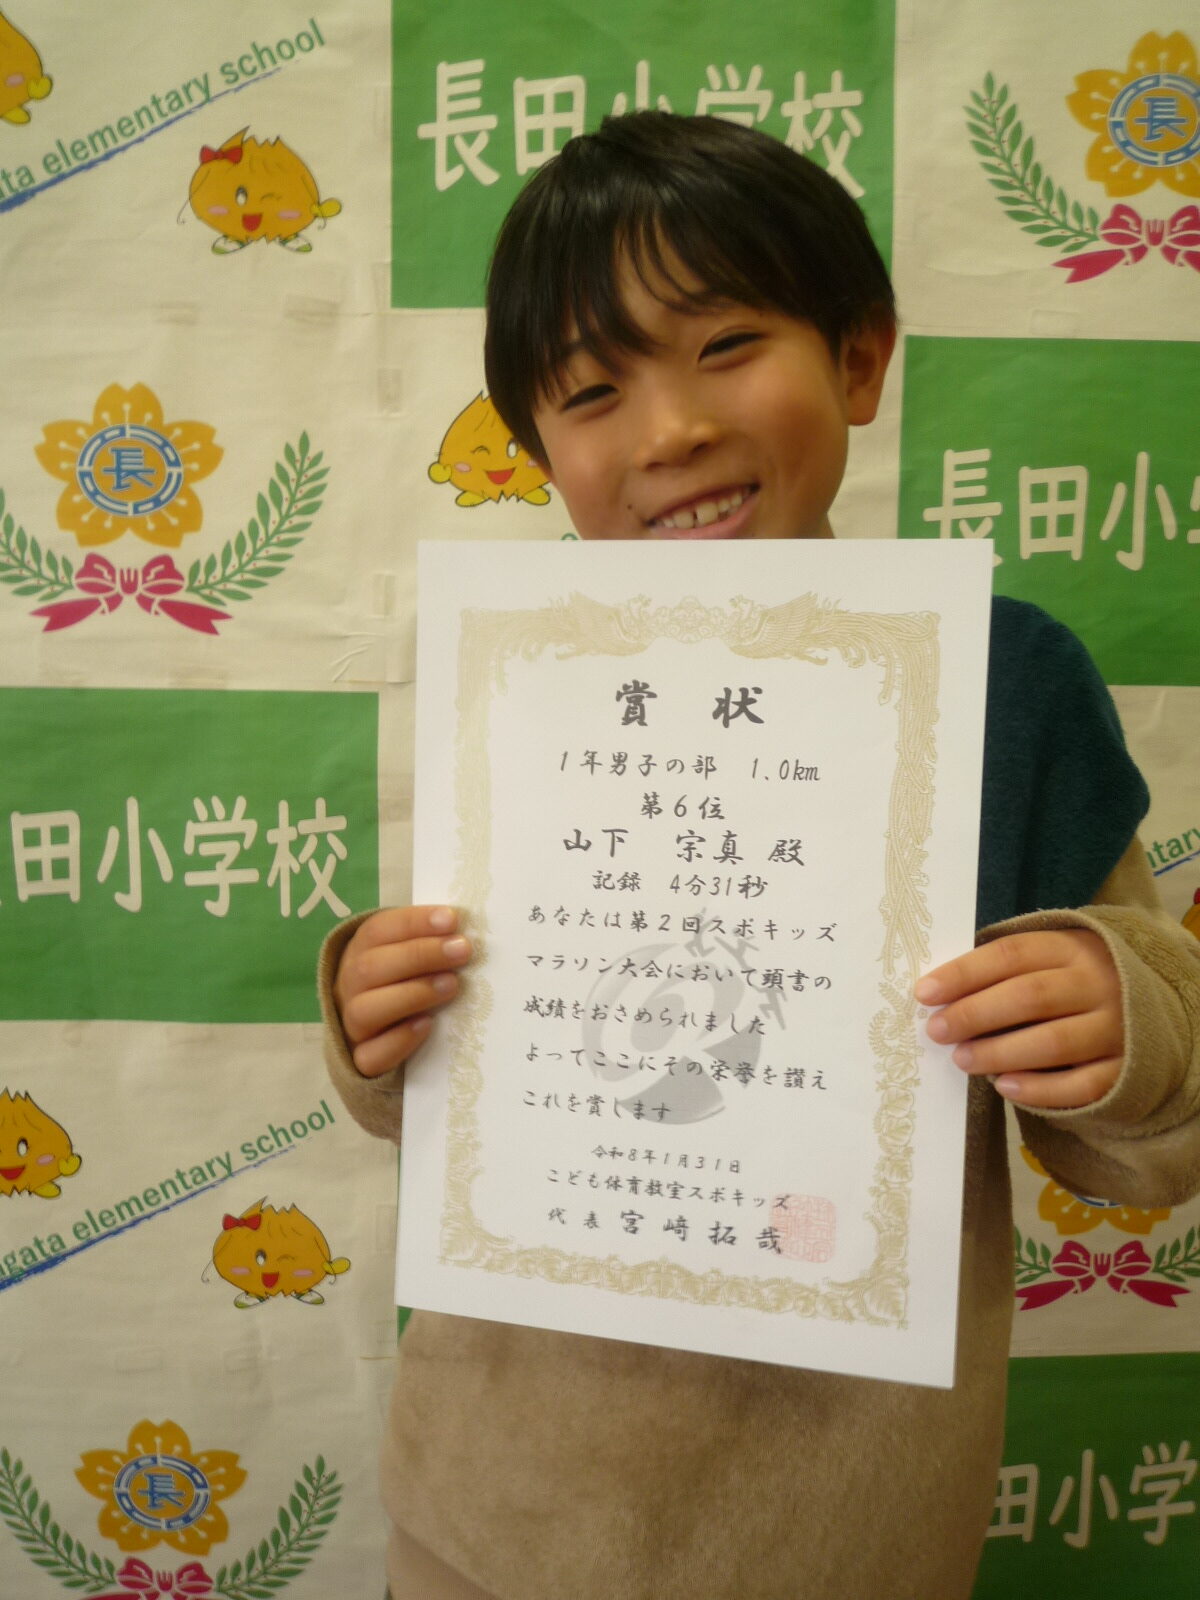 ata elementary school
長田小学校
長
長
長田小学
田小学校
賞 状
1年男子の部 1.0km
第6位
山下 宗真 殿
記録 4分31秒
あなたは第2回スポキッズ
マラソン大会において頭書の
成績をおさめられました
よってここにその栄挙を讃え
これを賞します
令和8年1月31日
こども体育教室スポキッズ
代表 宮﨑拓哉
gata elementary school
長
田小学